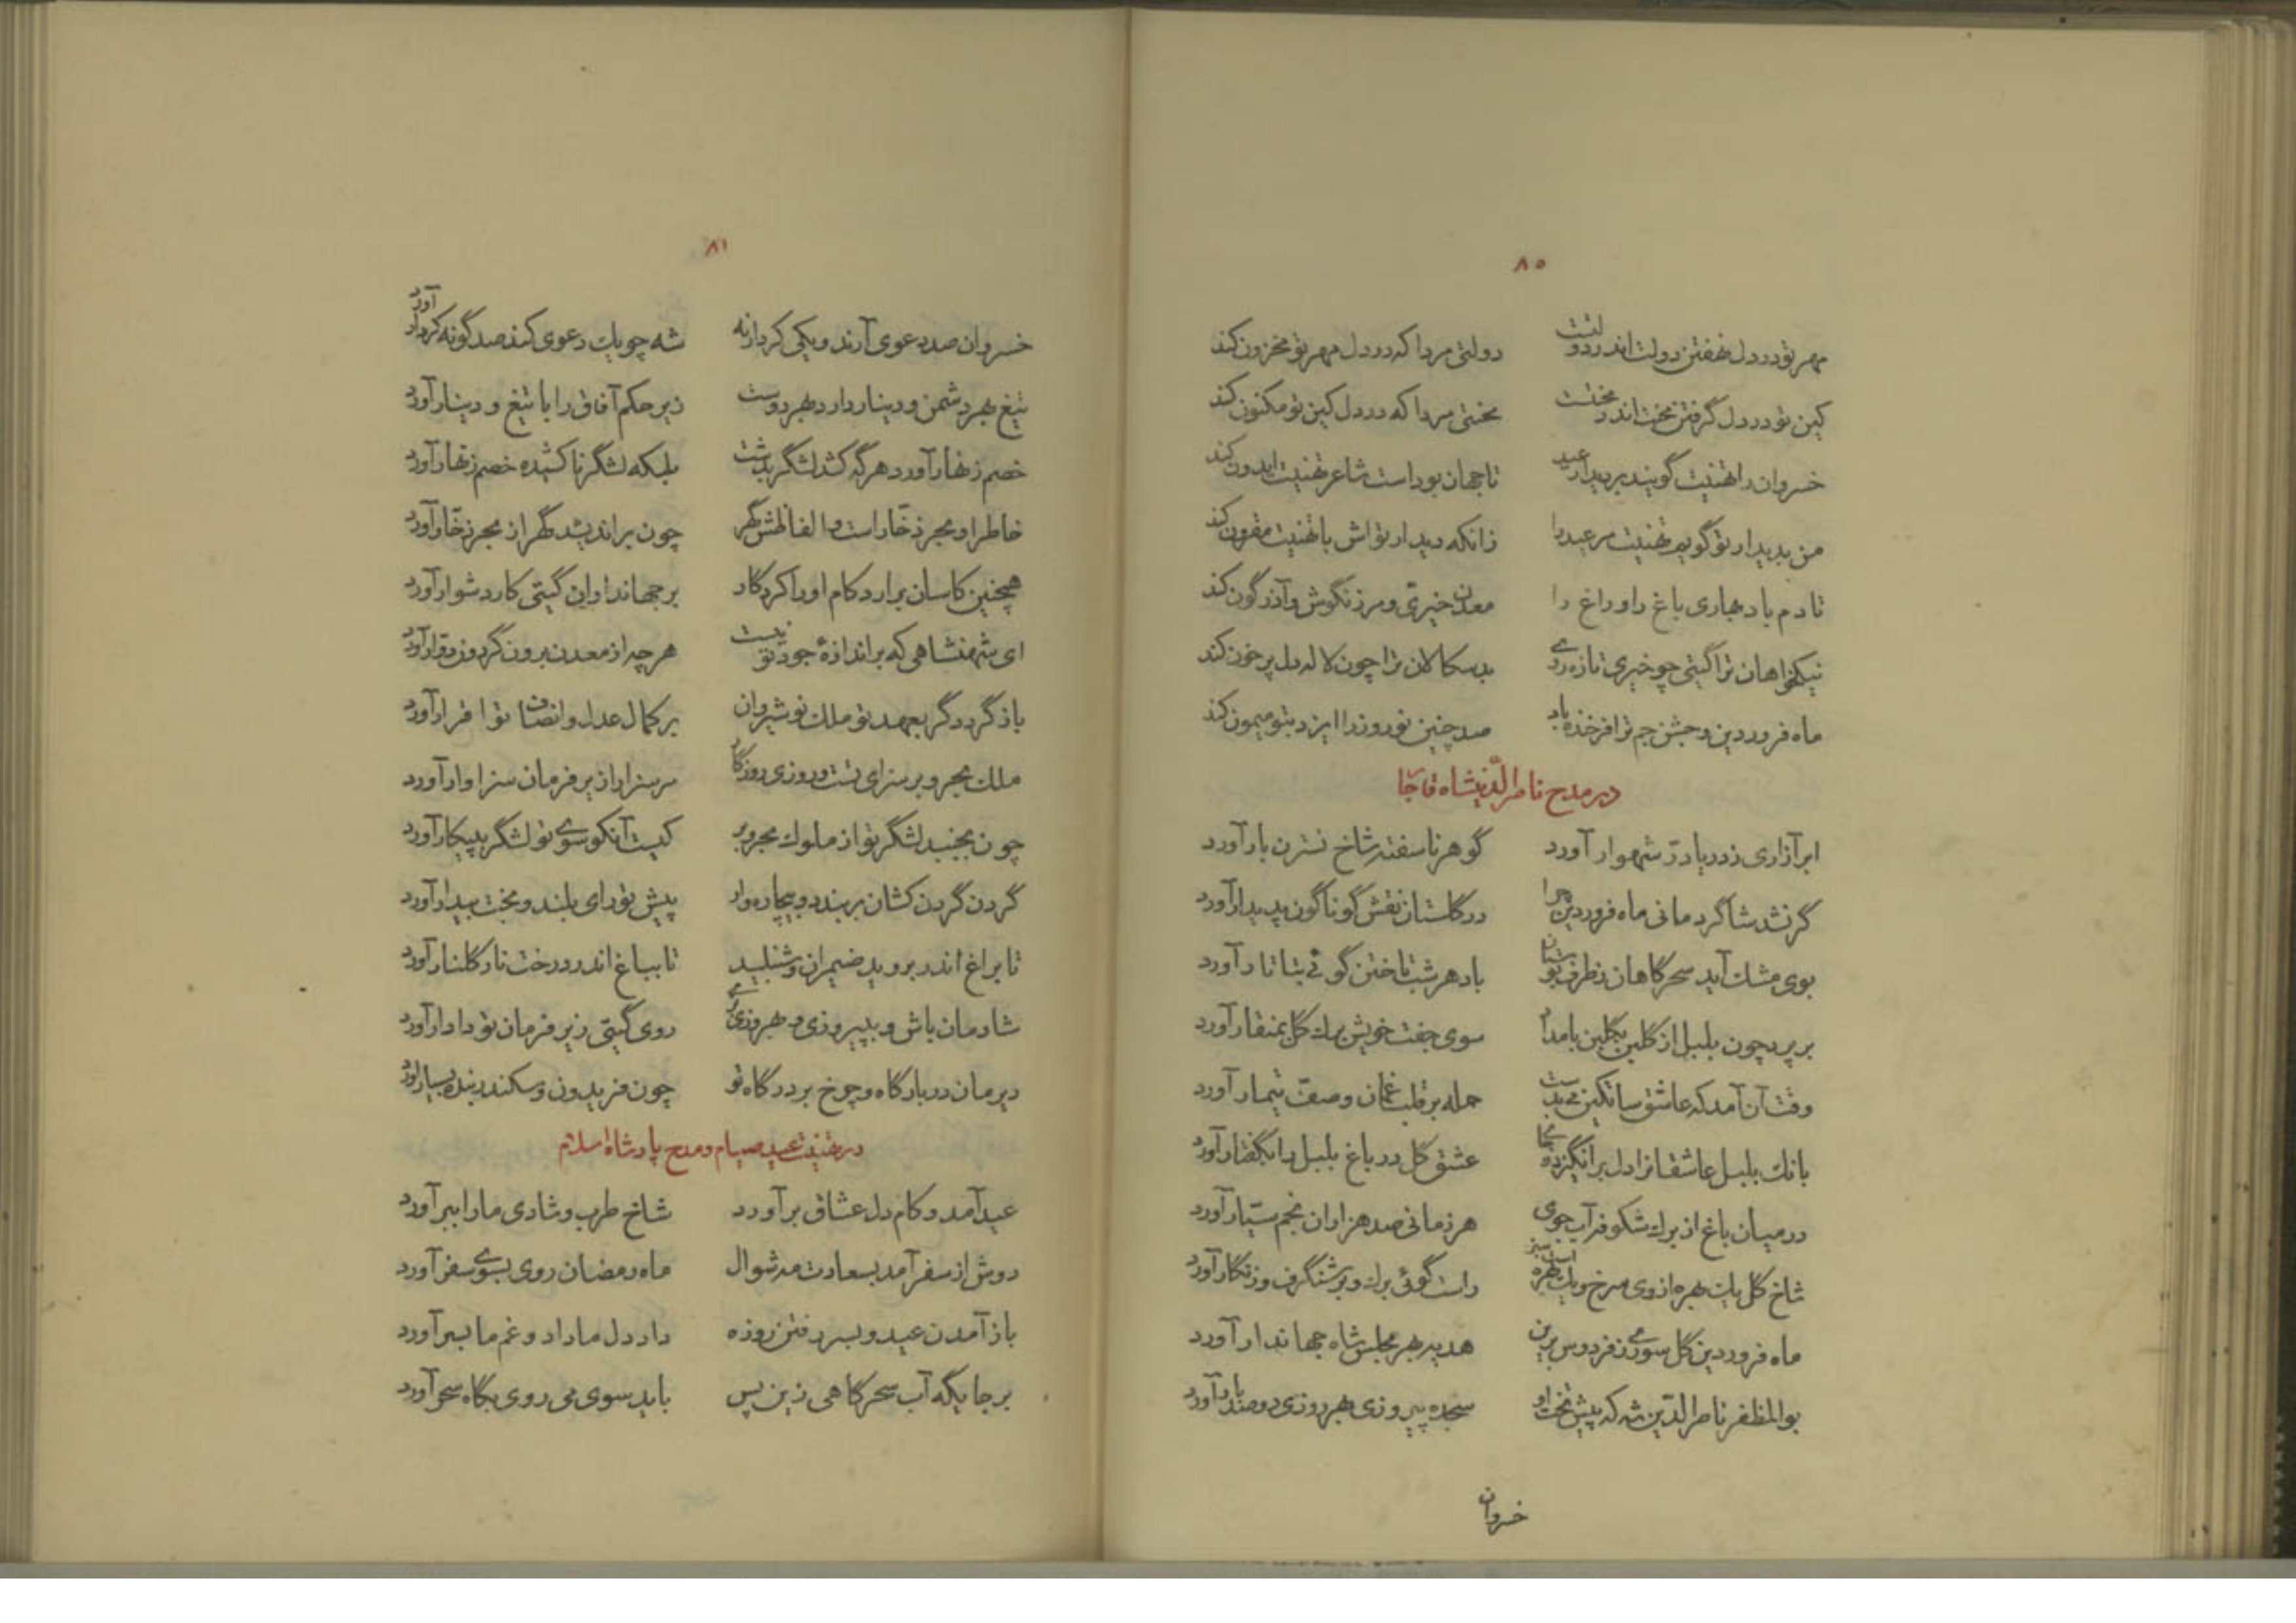 ۸۰
مهر تو در دل نهفتن دولت اندر دولتست دولتی مردا که در دل مهر تو مخزون کند
کین تو در دل گرفتن محنت اندر محنتست محنتی مردا که در دل کین تو مکنون کند
خسروان را تهنیت گویند بر دیدار عید تا جهان بوداست شاعر تهنیت ایدون کند
من بدیدار تو گویم تهنیت مر عید را زانکه دیدار تواش با تهنیت مقرون کند
تا دم باد بهاری باغ را و راغ را معدن خیری و مرزنگوش و آذرگون کند
نیکخواهان ترا گیتی چو خیری تازه روی بدسکالان ترا چون لاله دل پر خون کند
ماه فروردین و جشن جم ترا فرخنده باد صد چنین نوروز را ایزد بتو میمون کند
در مدح ناصرالدینشاه قاجار
ابر آزاری ز دریا درّ شهوار آورد گوهر ناسفته شاخ نسترن بار آورد
گر نشد شاگرد مانی ماه فروردین چرا در گلستان نقش گوناگون پدیدار آورد
بوی مشک آید سحرگاهان ز طرف بوستان باد هر شب تاختن گوئی بتاتار آورد
بر پرد چون بلبل از گلبن بگلبن بامداد سوی جفت خویش برک گل بمنقار آورد
وقت آن آمد که عاشق ساتکین می بدست حمله بر قلب غمان و صف تیمار آورد
بانک بلبل عاشقانرا دل برانگیزد ز جای عشق گل در باغ بلبل را بگفتار آورد
در میان باغ از برک شکوفه آب جوی هر زمانی صد هزاران نجم سیّار آورد
شاخ گل یک بهره از وی سرخ و یک بهره است سبز راست گوئی برک و بر شنگرف و زنگار آورد
ماه فروردین گل سوری ز فردوس برین هدیه بهر مجلس شاه جهاندار آورد
بوالمظفر ناصرالدین شه که پیش تخت او سجده پیروزی بهر روزی دو صد بار آورد
خسروان
۸۱
خسروان صد دعوی آرند و یکی کردار نه شه چو یک دعوی کند صد گونه کردار آورد
تیغ بهر دشمن و دینار دارد بهر دوست زیر حکم آفاق را با تیغ و دینار آورد
خصم زنهار آورد هرگه کشد لشگر بدشت بلکه لشگر ناکشیده خصم زنهار آورد
خاطر او بحر زخّار است و الفاظش گهر چون براندیشد گهر از بحر زخّار آورد
همچنین کاسان برارد کام او را کردگار بر جهانداران گیتی کار دشوار آورد
ای شهنشاهی که بر اندازهٔ جود تو نیست هر چه از معدن برون گردون دوّار آورد
باز گردد گر بعهد تو ملک نوشیروان بر کمال عدل و انصاف تو اقرار آورد
ملک بحر و بر سزای تست و روزی روزگار سر سزارا زیر فرمان سزاوار آورد
چون بجنبد لشگر تو از ملوک بحر و بر کیست آنکو سوی تو لشگر به پیکار آورد
گردن گردن کشان بر بندد و بیچاره وار پیش تو رای بلند و بخت بیدار آورد
تا براغ اندر بروید ضیمران و شنبلید تا بباغ اندر درخت نار گلنار آورد
شادمان باش و به پیروزی و بهروزی گرای روی گیتی زیر فرمان تو دادار آورد
دیر مان در بارگاه و چرخ بر درگاه تو چون فریدون و سکندر بنده بسیار آورد
در تهنیت عید صیام و مدح پادشاه اسلام
عید آمد و کام دل عشاق بر آورد شاخ طرب و شادی ما را ببر آورد
دوش از سفر آمد بسعادت مه شوال ماه رمضان روی بسوی سفر آورد
باز آمدن عید و بسر رفتن روزه داد دل ما داد و غم ما بسر آورد
بر جایگه آب سحرگاهی زین پس باید سوی می روی بگاه سحر آورد